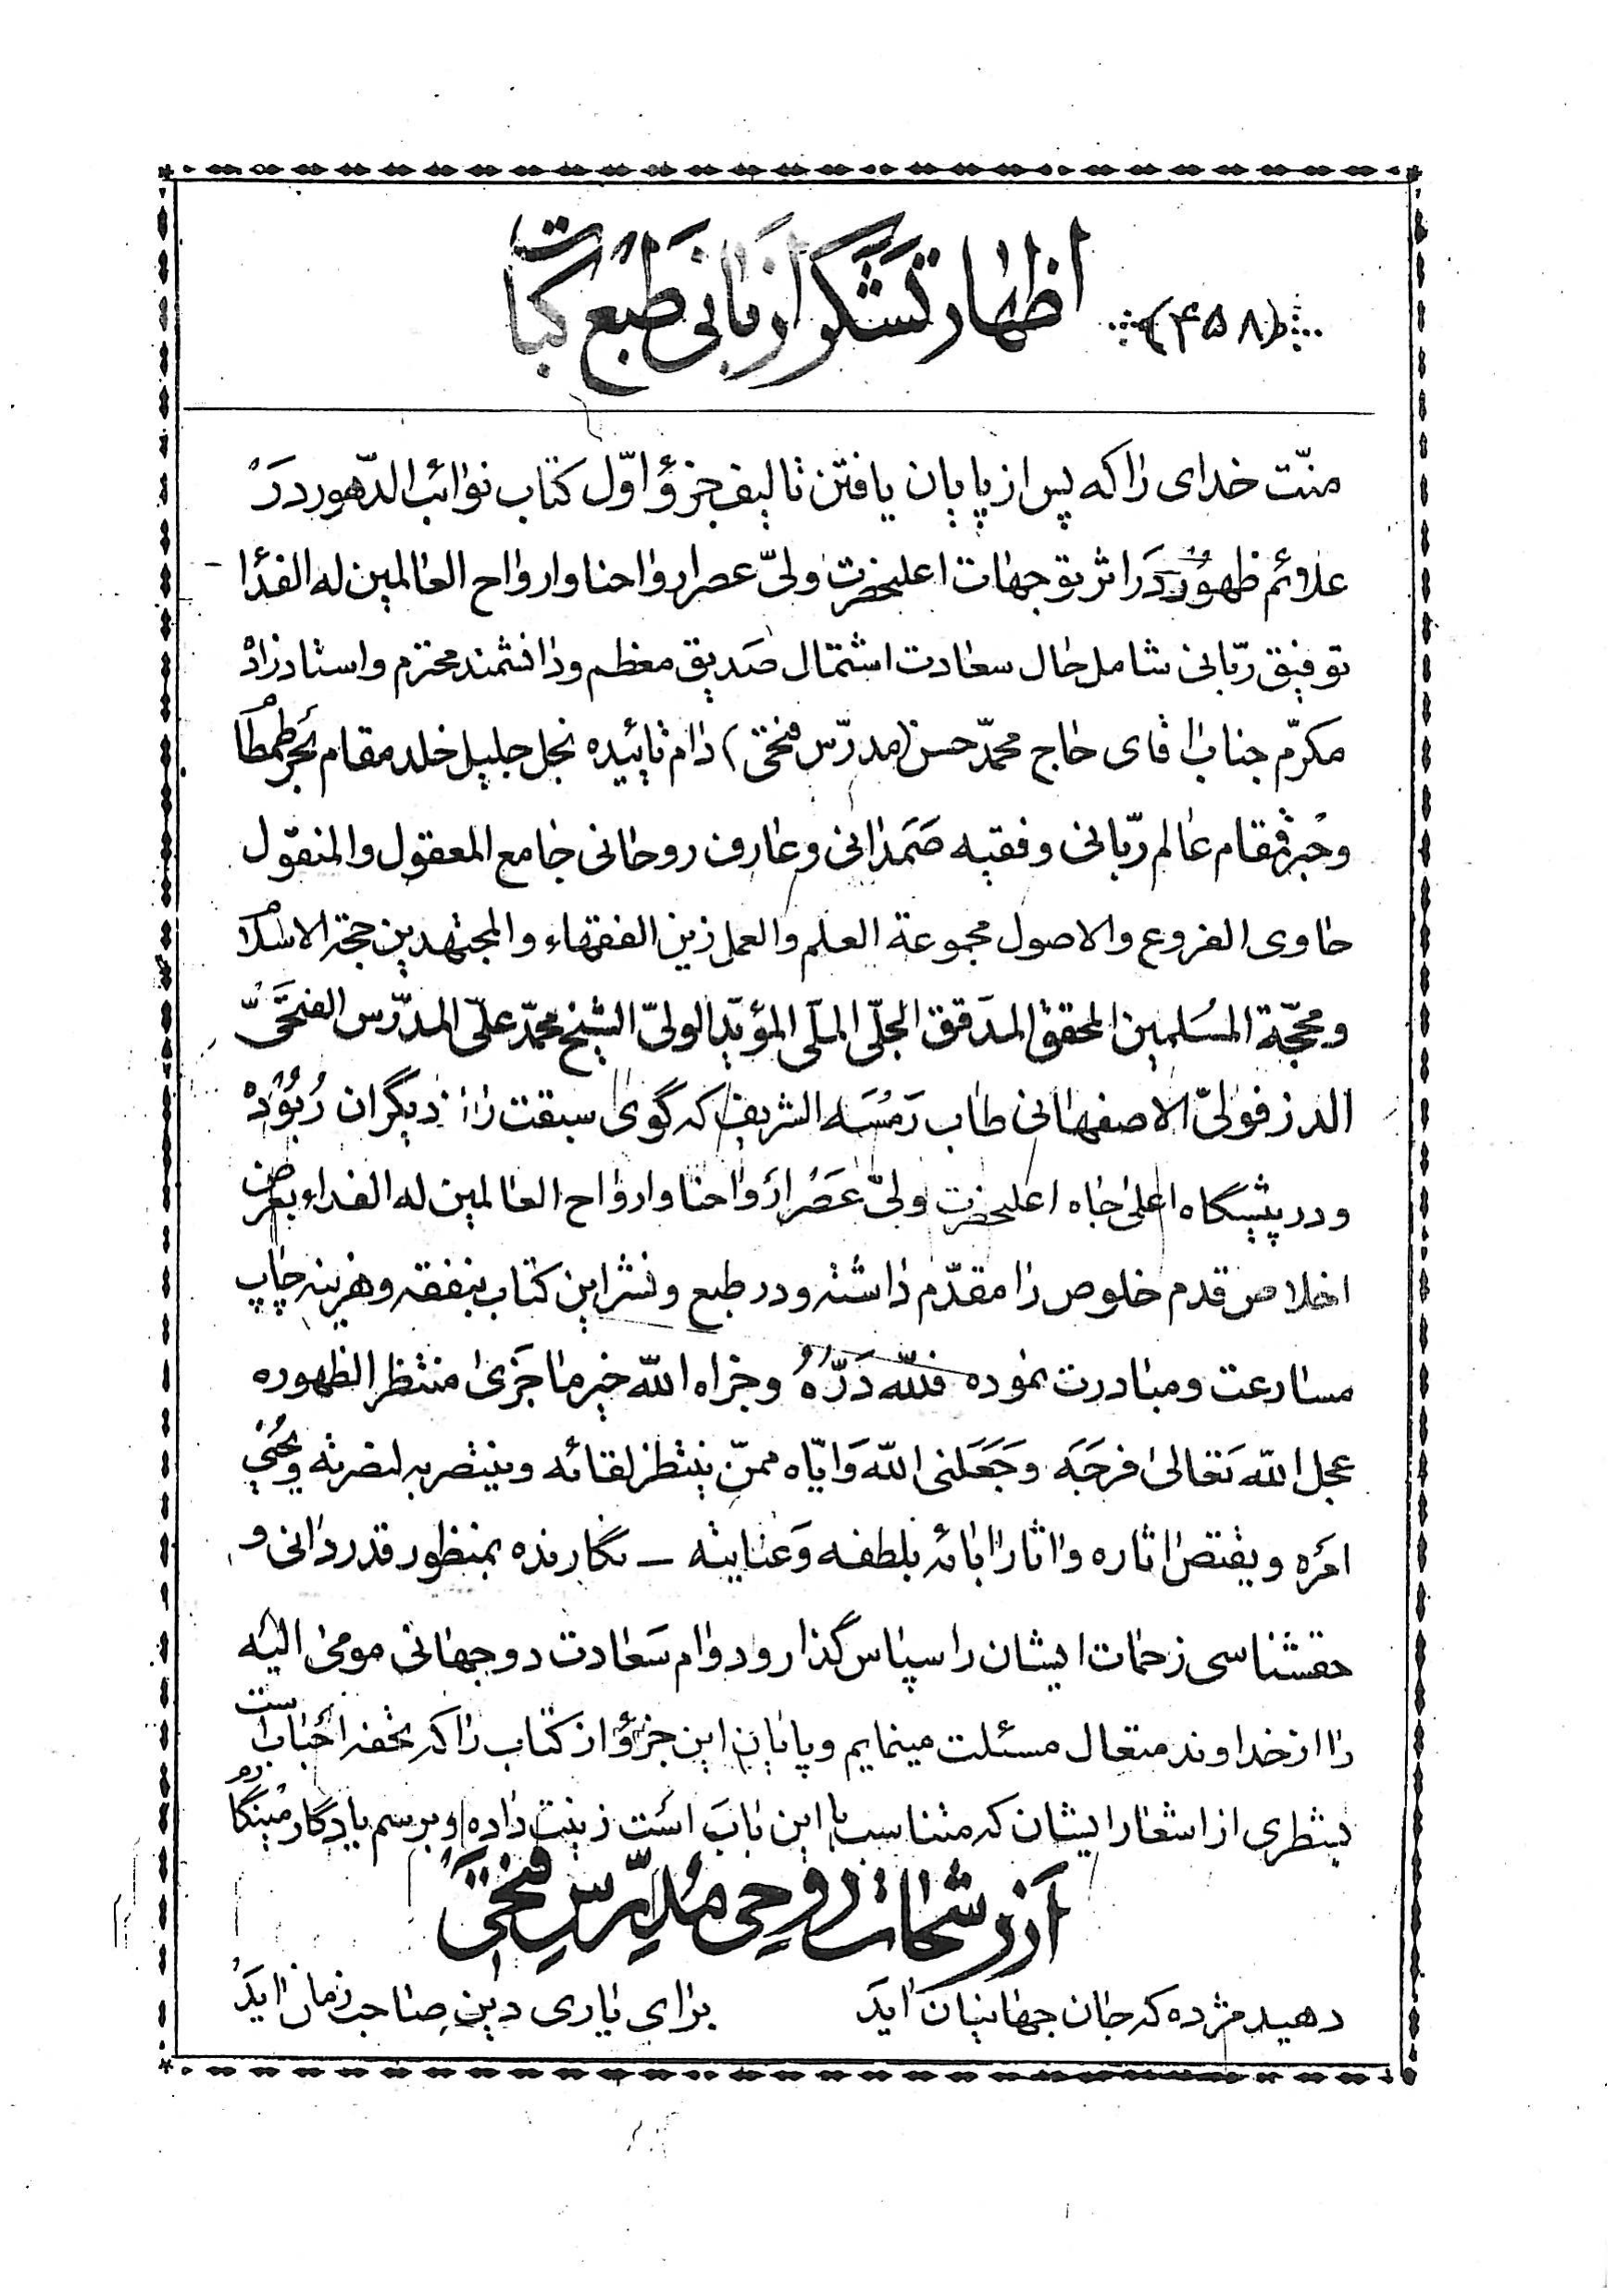 (۴۵۸) اظهار تشکر از بانی طبع کتاب
منّت خدای را که پس از پایان یافتن تالیف جزؤ اوّل کتاب نوائب الدّهور در
علائم ظهور در اثر توجهات اعلیحضرت ولیّ عصر ارواحنا و ارواح العالمین له الفدا
توفیق ربّانی شامل حال سعادت اشتمال صدیق معظم و دانشمند محترم و استادزاده
مکرّم جناب اقای حاج محمّد حسن (مدرّس فتحی) دام تائیده نجل جلیل خلد مقام بحر طمطام
و حبر قمقام عالم ربّانی و فقیه صَمَدانی و عارف روحانی جامع المعقول والمنقول
حاوی الفروع والاصول مجموعة العلم والعمل زین الفقهاء والمجتهدین حجة الاسلام
و محجّة المسلمین المحقق المدقق الجلّی الملّی المؤید الولیّ الشیخ محمّد علیّ المدرّس الفتحیّ
الدزفولیّ الاصفهانی طاب رَمْسَه الشریف که گوی سبقت را از دیگران ربوده
و در پیشگاه اعلی جاه اعلیحضرت ولیّ عَصْر ارَواحنا و ارواح العالمین له الفداء بعرض
اخلاص قدم خلوص را مقدّم داشته و در طبع و نشر این کتاب بنفقه و هزینه چاپ
مسارعت و مبادرت نموده فللّه دَرُّهُ و جزاه اللّه خیر ما جَزیٰ منتظر الظهوره
عجل اللّه تعالیٰ فرجَه و جَعَلنی اللّه وَ ایّاه ممّن ینتظر لقائه و ینتصر به لنصرته و یحیی
امَره و یقتص اثاره و اثار ابائه بلطفه وَ عنایته — نگارنده بمنظور قدردانی و
حقشناسی زحمات ایشان را سپاس گذار و دوام سَعادت دو جهانی مومیٰ الیه
را از خداوند متعال مسئلت مینمایم و پایان این جزؤ از کتاب را که تحفه احباب است
بشطری از اشعار ایشان که متناسب با این باب است زینت داده و برسم یادگار مینگارم
از رشحات روحی مدرّس فتحی
دهید مژده که جان جهانیان آید برای یاری دین صاحب زمان آید